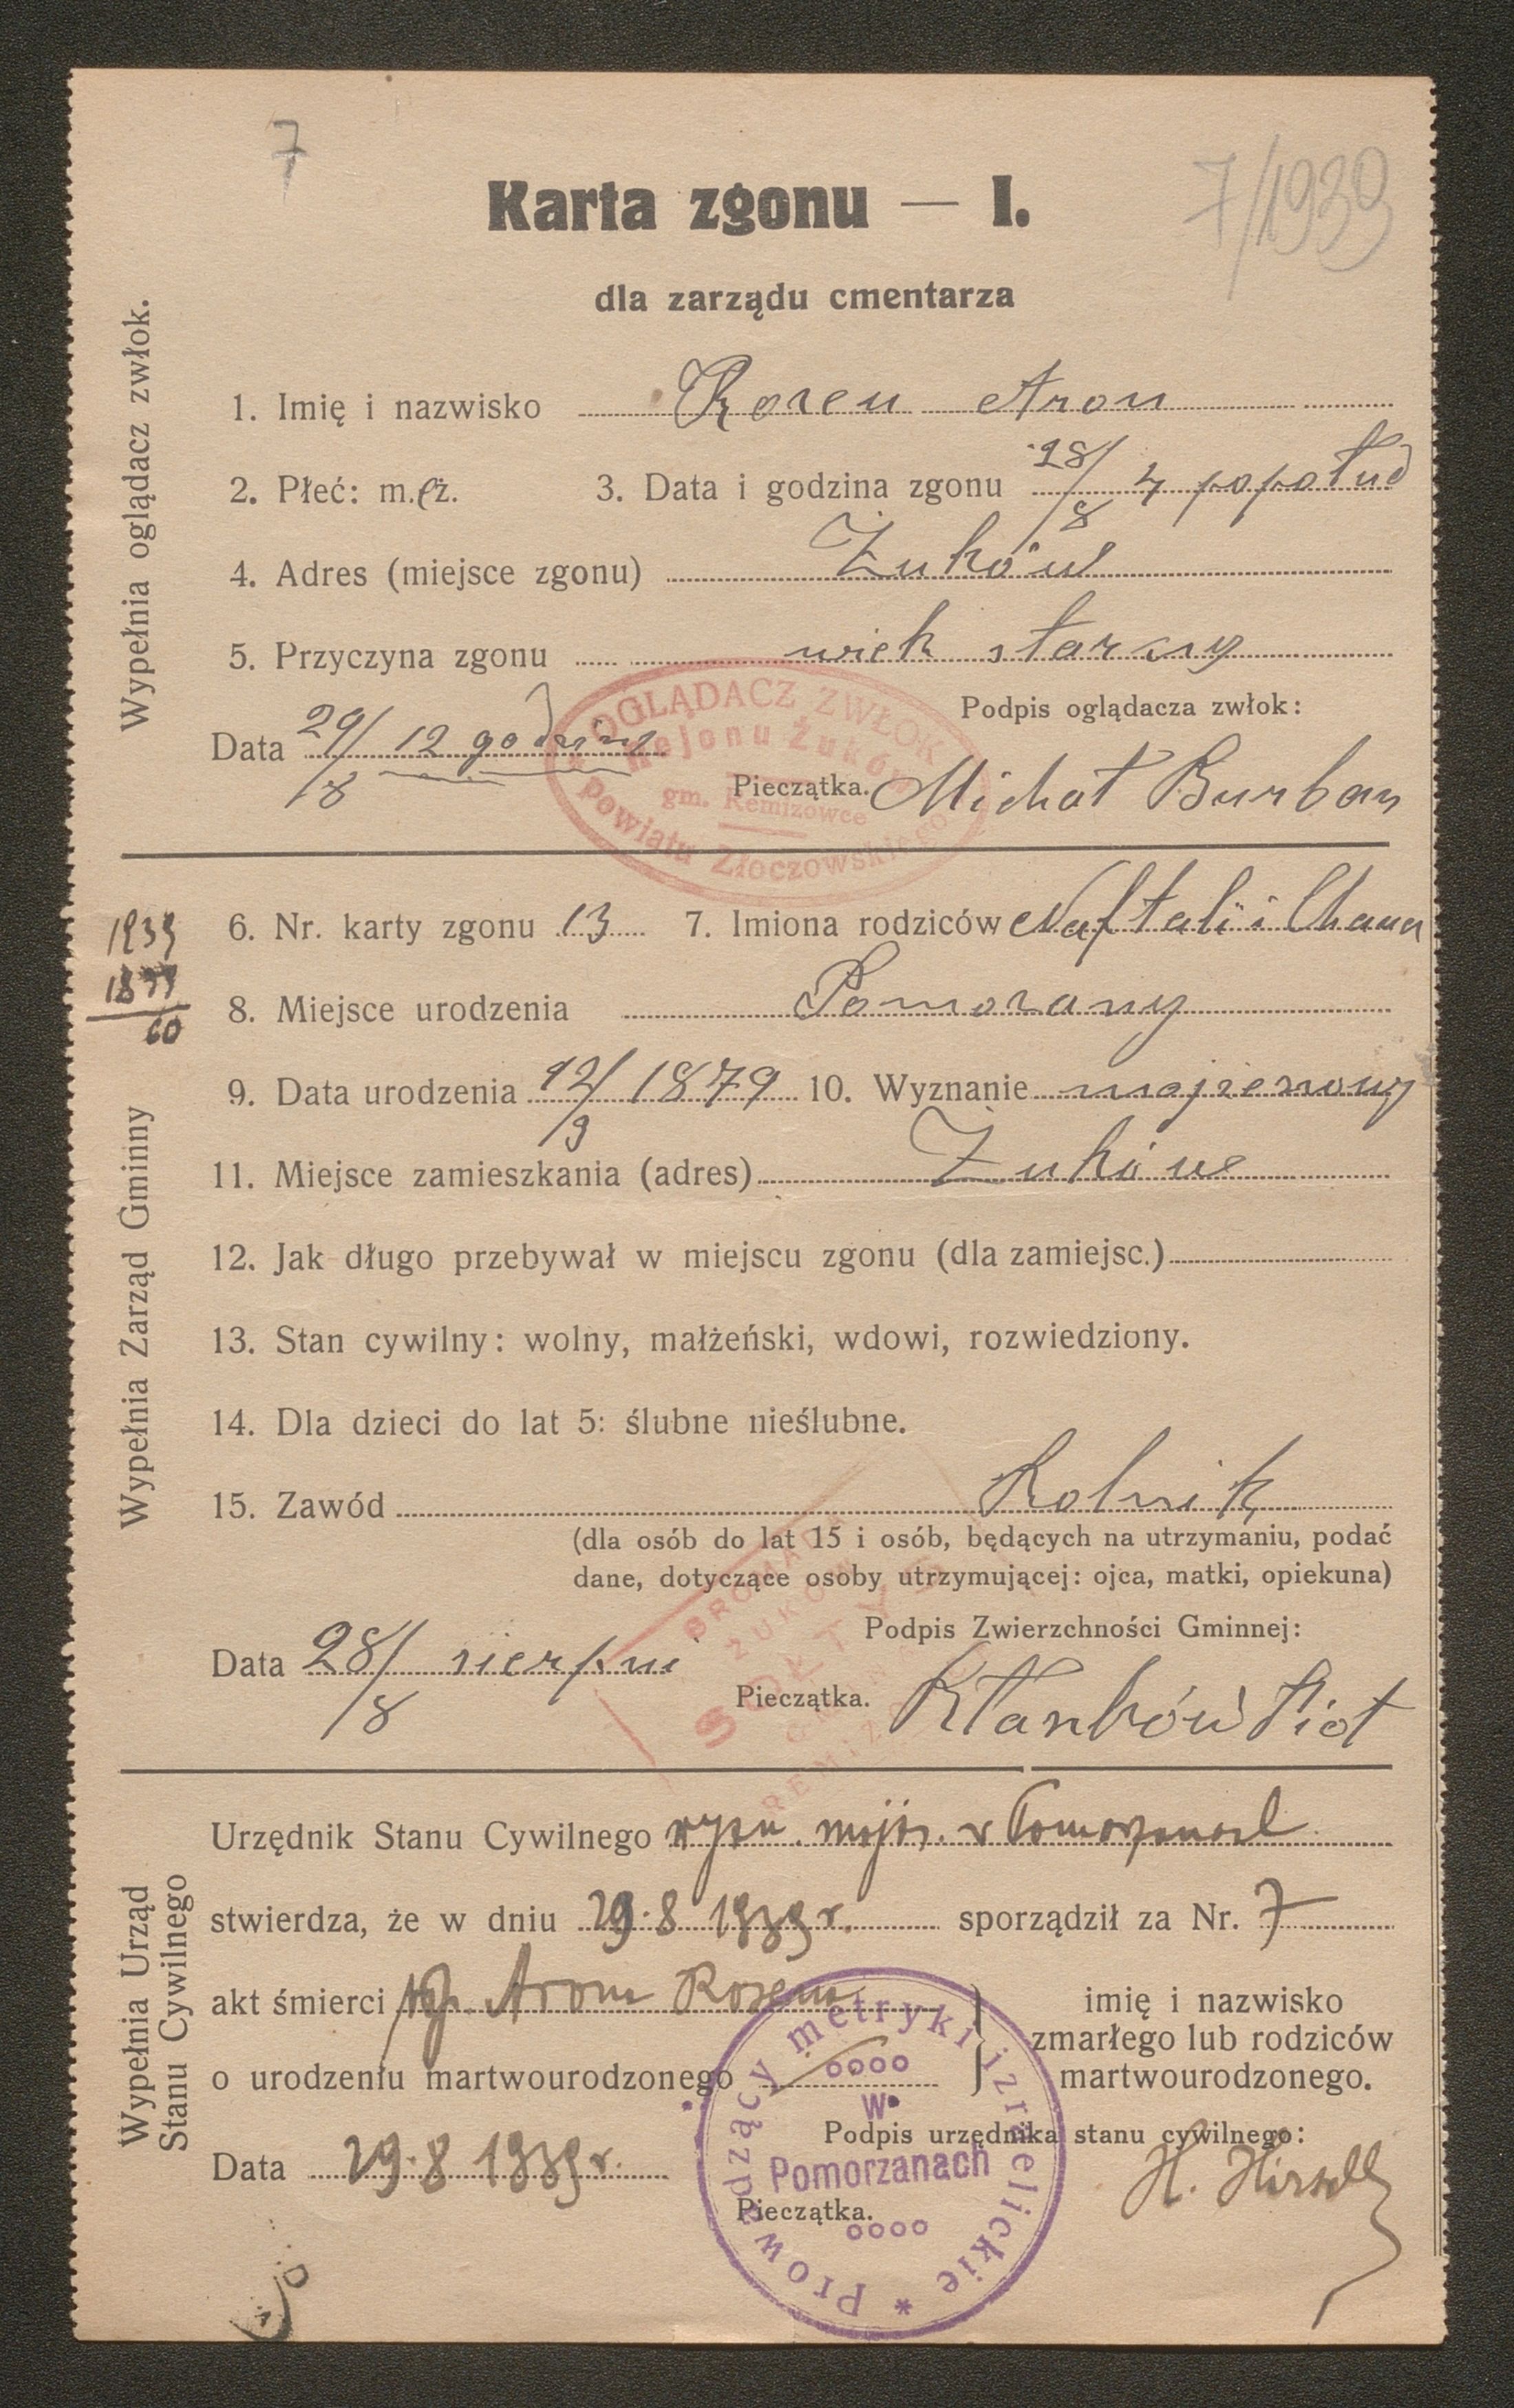 7
7/1939
Karta zgonu — I.
dla zarządu cmentarza
Wypełnia oglądacz zwłok.
1. Imię i nazwisko Rozen Aron
2. Płeć: m. ż. 3. Data i godzina zgonu 28/8 4 popołud
4. Adres (miejsce zgonu) Żuków
5. Przyczyna zgonu wiek starczy
Podpis oglądacza zwłok:
Data 29/8 12 godziny
Pieczątka. Michał Burban
OGLĄDACZ ZWŁOK
Rejonu Żuków
gm. Remizowce
powiatu Złoczowskiego
Wypełnia Zarząd Gminny
1939
1879
60
6. Nr. karty zgonu 13 7. Imiona rodziców Naftali i Chana
8. Miejsce urodzenia Pomorzany
9. Data urodzenia 12/3 1879 10. Wyznanie mojżeszowy
11. Miejsce zamieszkania (adres) Żuków
12. Jak długo przebywał w miejscu zgonu (dla zamiejsc.)
13. Stan cywilny: wolny, małżeński, wdowi, rozwiedziony.
14. Dla dzieci do lat 5: ślubne nieślubne.
15. Zawód Rolnik
(dla osób do lat 15 i osób, będących na utrzymaniu, podać
dane, dotyczące osoby utrzymującej: ojca, matki, opiekuna)
Podpis Zwierzchności Gminnej:
Data 28/8 sierpni
Pieczątka.
GROMADA
ŻUKÓW
SOŁTYS
Wypełnia Urząd
Stanu Cywilnego
Urzędnik Stanu Cywilnego wyzn. mojż. w Pomorzanach
stwierdza, że w dniu 29.8 1939 r. sporządził za Nr. 7
akt śmierci Aron Rozen
imię i nazwisko
zmarłego lub rodziców
martwourodzonego.
o urodzeniu martwourodzonego
Podpis urzędnika stanu cywilnego:
Data 29.8 1939 r.
Pieczątka.
H. Hirsch
Prowadzący metryki izraelickie *
w
Pomorzanach